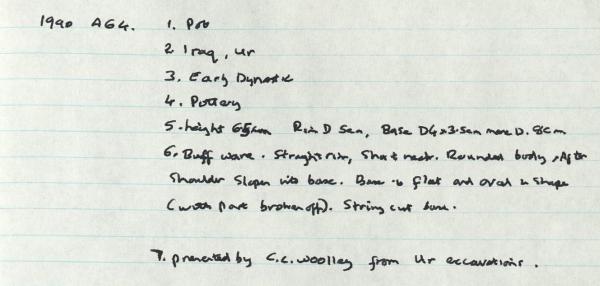 1990 AG4. 1. Pot
2 Iraq, Ur
3. Early Dynastic
4. Pottery
5. height 6.5cm Rim D 5cm, Base D4x3.5cm max D. 8cm
6. Buff ware. Straight rim, Short neck. Rounded body. After
Shoulder Slopes into base. Base is flat and oval in shape
(with part broken off). String cut base.
7. presented by C.L. Woolley from Ur excavations.